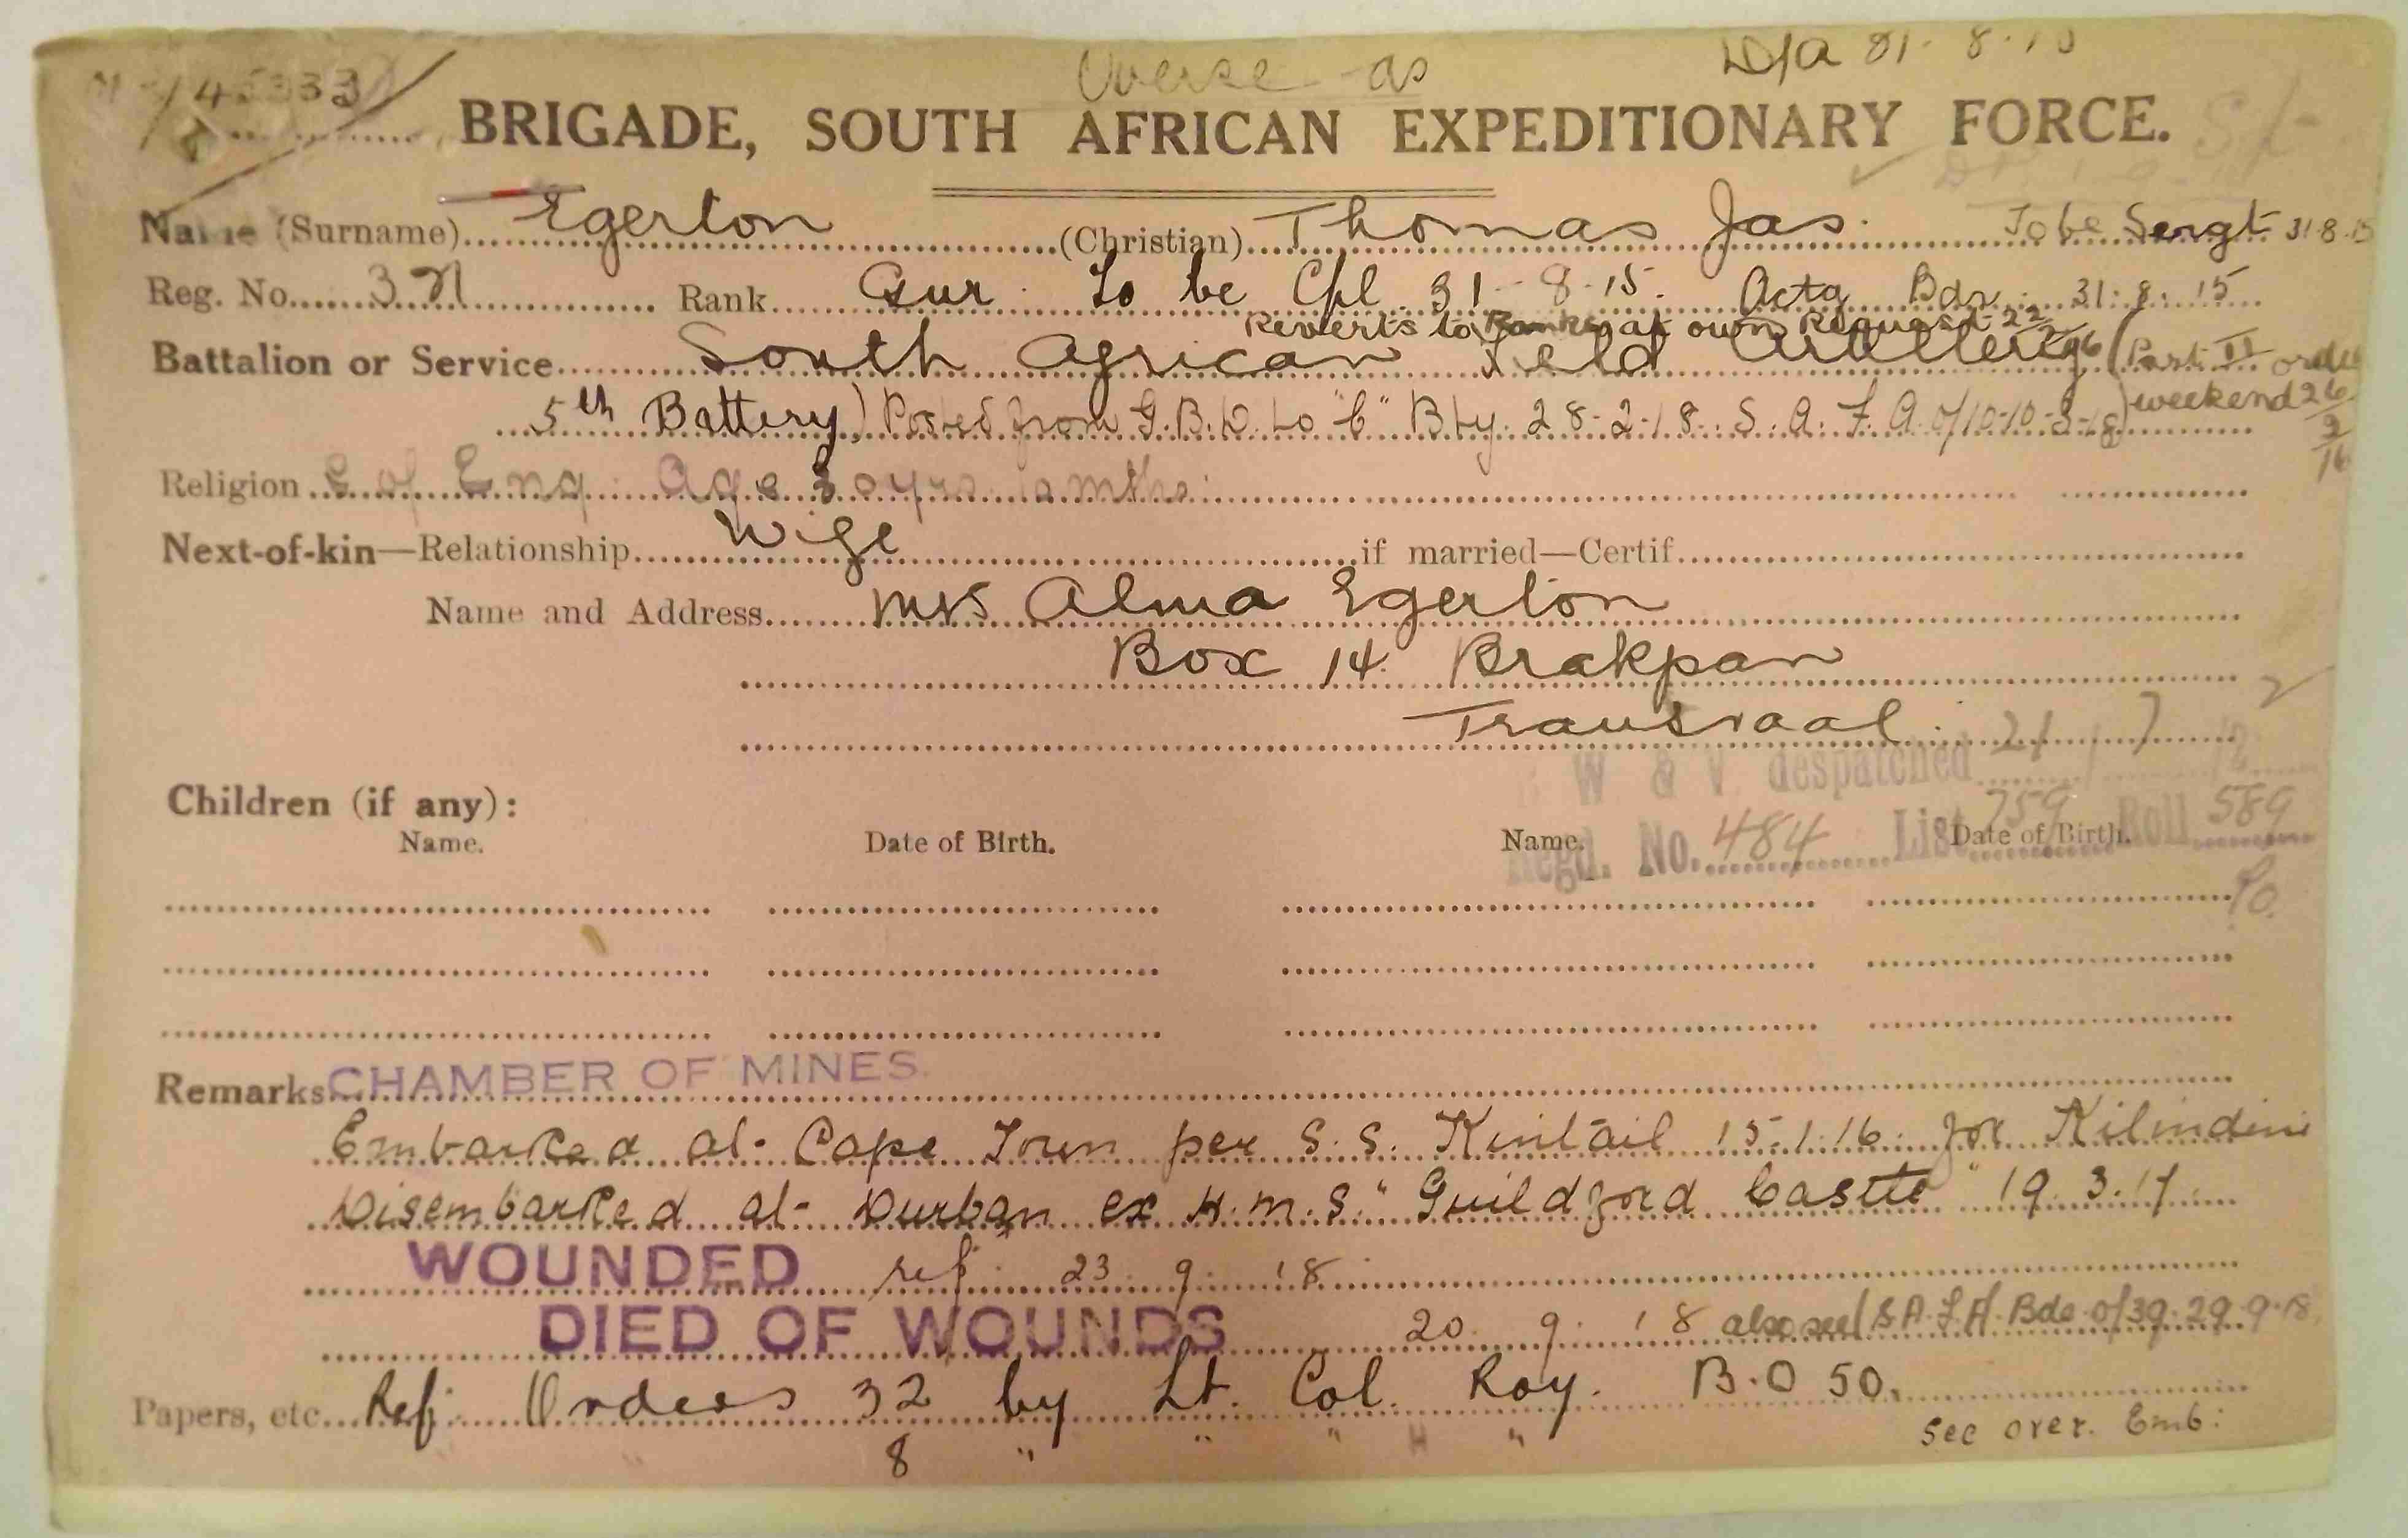 Overse as D/A 31-8-15
45333
BRIGADE, SOUTH AFRICAN EXPEDITIONARY FORCE.
Name (Surname) Egerton (Christian) Thomas Jas. To be Sergt 31.8.15
Reg. No. Rank Gnr. To be Cpl 31-8-15. Actg Bdr. 31.8.15
Reverts to Ranks at own request
Battalion or Service South African Field Artillery (Part II order
5th Battery) Posted from G.B.D. to "C" Bty. 28-2-18. S.A.F.A. o/10-10-3-18 weekend 26/9/16
Religion C of Eng. Age 30 yrs mths.
Next-of-kin—Relationship Wife if married—Certif.
Name and Address Mrs Alma Egerton
Box 14 Brakpan
Transvaal.
W & V despatched 21/7
Children (if any):
Regd. No. 484 List 759 Roll 589
Name. Date of Birth. Name. Date of Birth.
Remarks CHAMBER OF MINES.
Embarked at Cape Town per S.S. Kintail 15.1.16. for Kilindini
Disembarked at Durban ex H.M.S. "Guildford Castle" 19.3.17.
WOUNDED ref. 23.9.18
DIED OF WOUNDS 20.9.18 also see S.A.F.A. Bde. o/39.29.9.18.
Papers, etc. Ref: Orders 32 by Lt. Col. Roy. B.O 50.
8 " " " " "
See over. Emb: